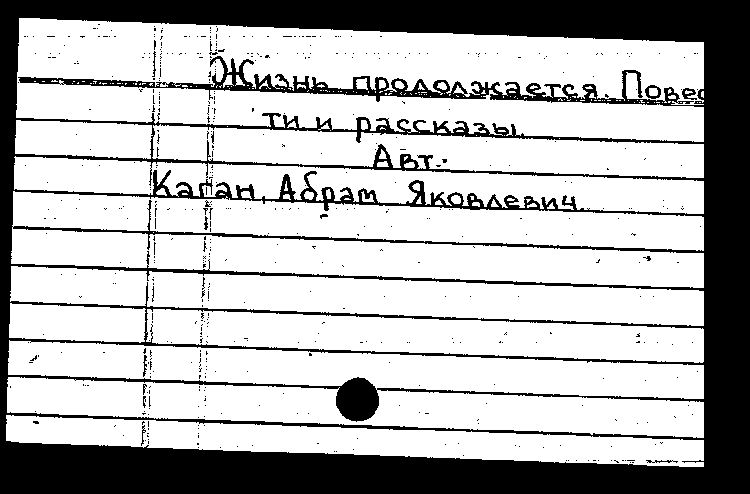 Жизнь продолжается. Повес
ти и рассказы.
Авт.:
Каган, Абрам Яковлевич